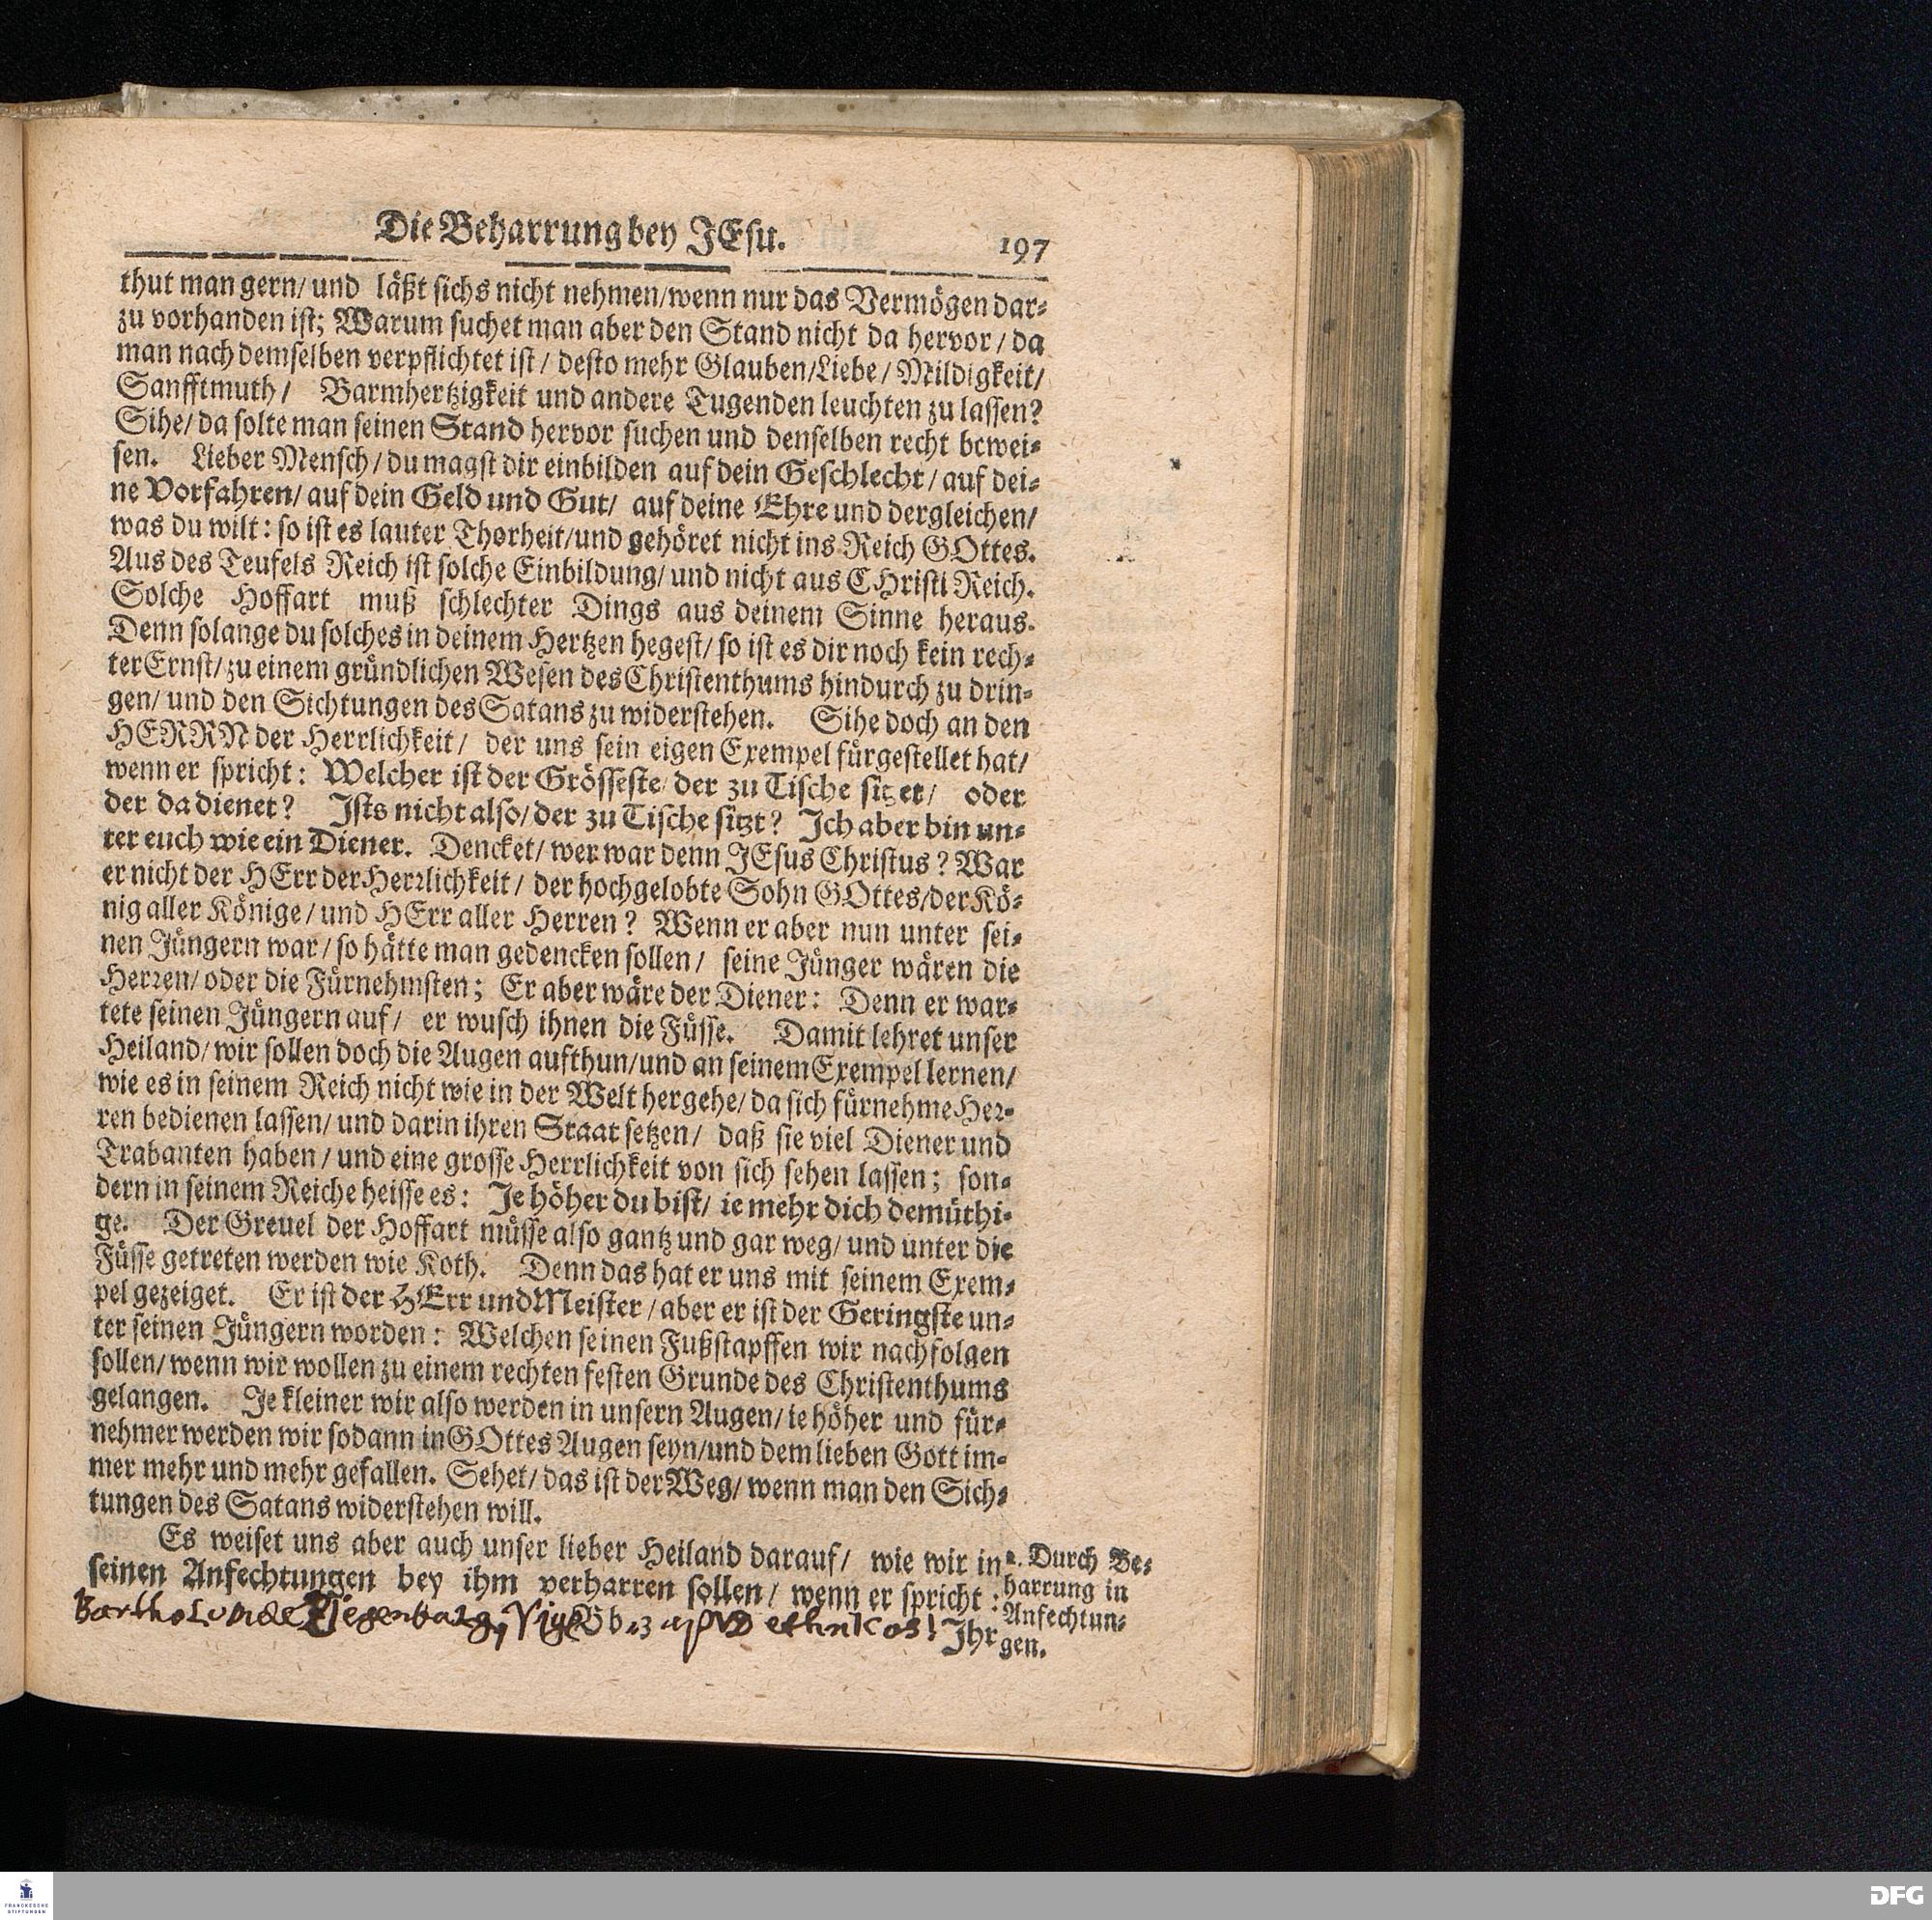 Die Beharrung bey JEsu.
197
thut man gern/ und läßt sichs nicht nehmen/wenn nur das Vermögen dar-
zu vorhanden ist; Warum suchet man aber den Stand nicht da hervor/ da
man nach demselben verpflichtet ist/ desto mehr Glauben/Liebe/ Mildigkeit/
Sanfftmuth/ Barmhertzigkeit und andere Tugenden leuchten zu lassen?
Sihe/ da solte man seinen Stand hervor suchen und denselben recht bewei-
sen. Lieber Mensch/ du magst dir einbilden auf dein Geschlecht/ auf dei-
ne Vorfahren/ auf dein Geld und Gut/ auf deine Ehre und dergleichen/
was du wilt: so ist es lauter Thorheit/und gehöret nicht ins Reich GOttes.
Aus des Teufels Reich ist solche Einbildung/ und nicht aus CHristi Reich.
Solche Hoffart muß schlechter Dings aus deinem Sinne heraus.
Denn solange du solches in deinem Hertzen hegest/ so ist es dir noch kein rech-
ter Ernst/ zu einem gründlichen Wesen des Christenthums hindurch zu drin-
gen/ und den Sichtungen des Satans zu widerstehen. Sihe doch an den
HERRN der Herrlichkeit/ der uns sein eigen Exempel fürgestellet hat/
wenn er spricht: Welcher ist der Grösseste/ der zu Tische sitzet/ oder
der da dienet? Ists nicht also/ der zu Tische sitzt? Ich aber bin un-
ter euch wie ein Diener. Dencket/ wer war denn JEsus Christus? War
er nicht der HErr der Herrlichkeit/ der hochgelobte Sohn GOttes/der Kö-
nig aller Könige/ und HErr aller Herren? Wenn er aber nun unter sei-
nen Jüngern war/ so hätte man gedencken sollen/ seine Jünger wären die
Herren/ oder die Fürnehmsten; Er aber wäre der Diener: Denn er war-
tete seinen Jüngern auf/ er wusch ihnen die Füsse. Damit lehret unser
Heiland/ wir sollen doch die Augen aufthun/und an seinem Exempel lernen/
wie es in seinem Reich nicht wie in der Welt hergehe/ da sich fürnehme Her-
ren bedienen lassen/ und darin ihren Staat setzen/ daß sie viel Diener und
Trabanten haben/ und eine grosse Herrlichkeit von sich sehen lassen; son-
dern in seinem Reiche heisse es: Je höher du bist/ ie mehr dich demüthi-
ge. Der Greuel der Hoffart müsse also gantz und gar weg/ und unter die
Füsse getreten werden wie Koth. Denn das hat er uns mit seinem Exem-
pel gezeiget. Er ist der HErr und Meister/ aber er ist der Geringste un-
ter seinen Jüngern worden: Welchen seinen Fußstapffen wir nachfolgen
sollen/ wenn wir wollen zu einem rechten festen Grunde des Christenthums
gelangen. Je kleiner wir also werden in unsern Augen/ ie höher und für-
nehmer werden wir sodann in GOttes Augen seyn/und dem lieben Gott im-
mer mehr und mehr gefallen. Sehet/ das ist der Weg/ wenn man den Sich-
tungen des Satans widerstehen will.
Es weiset uns aber auch unser lieber Heiland darauf/ wie wir in
seinen Anfechtungen bey ihm verharren sollen/ wenn er spricht:
2. Durch Be-
harrung in
Anfechtun-
gen.
Bb 3
Ihr
FRANCKESCHE
STIFTUNGEN
DFG